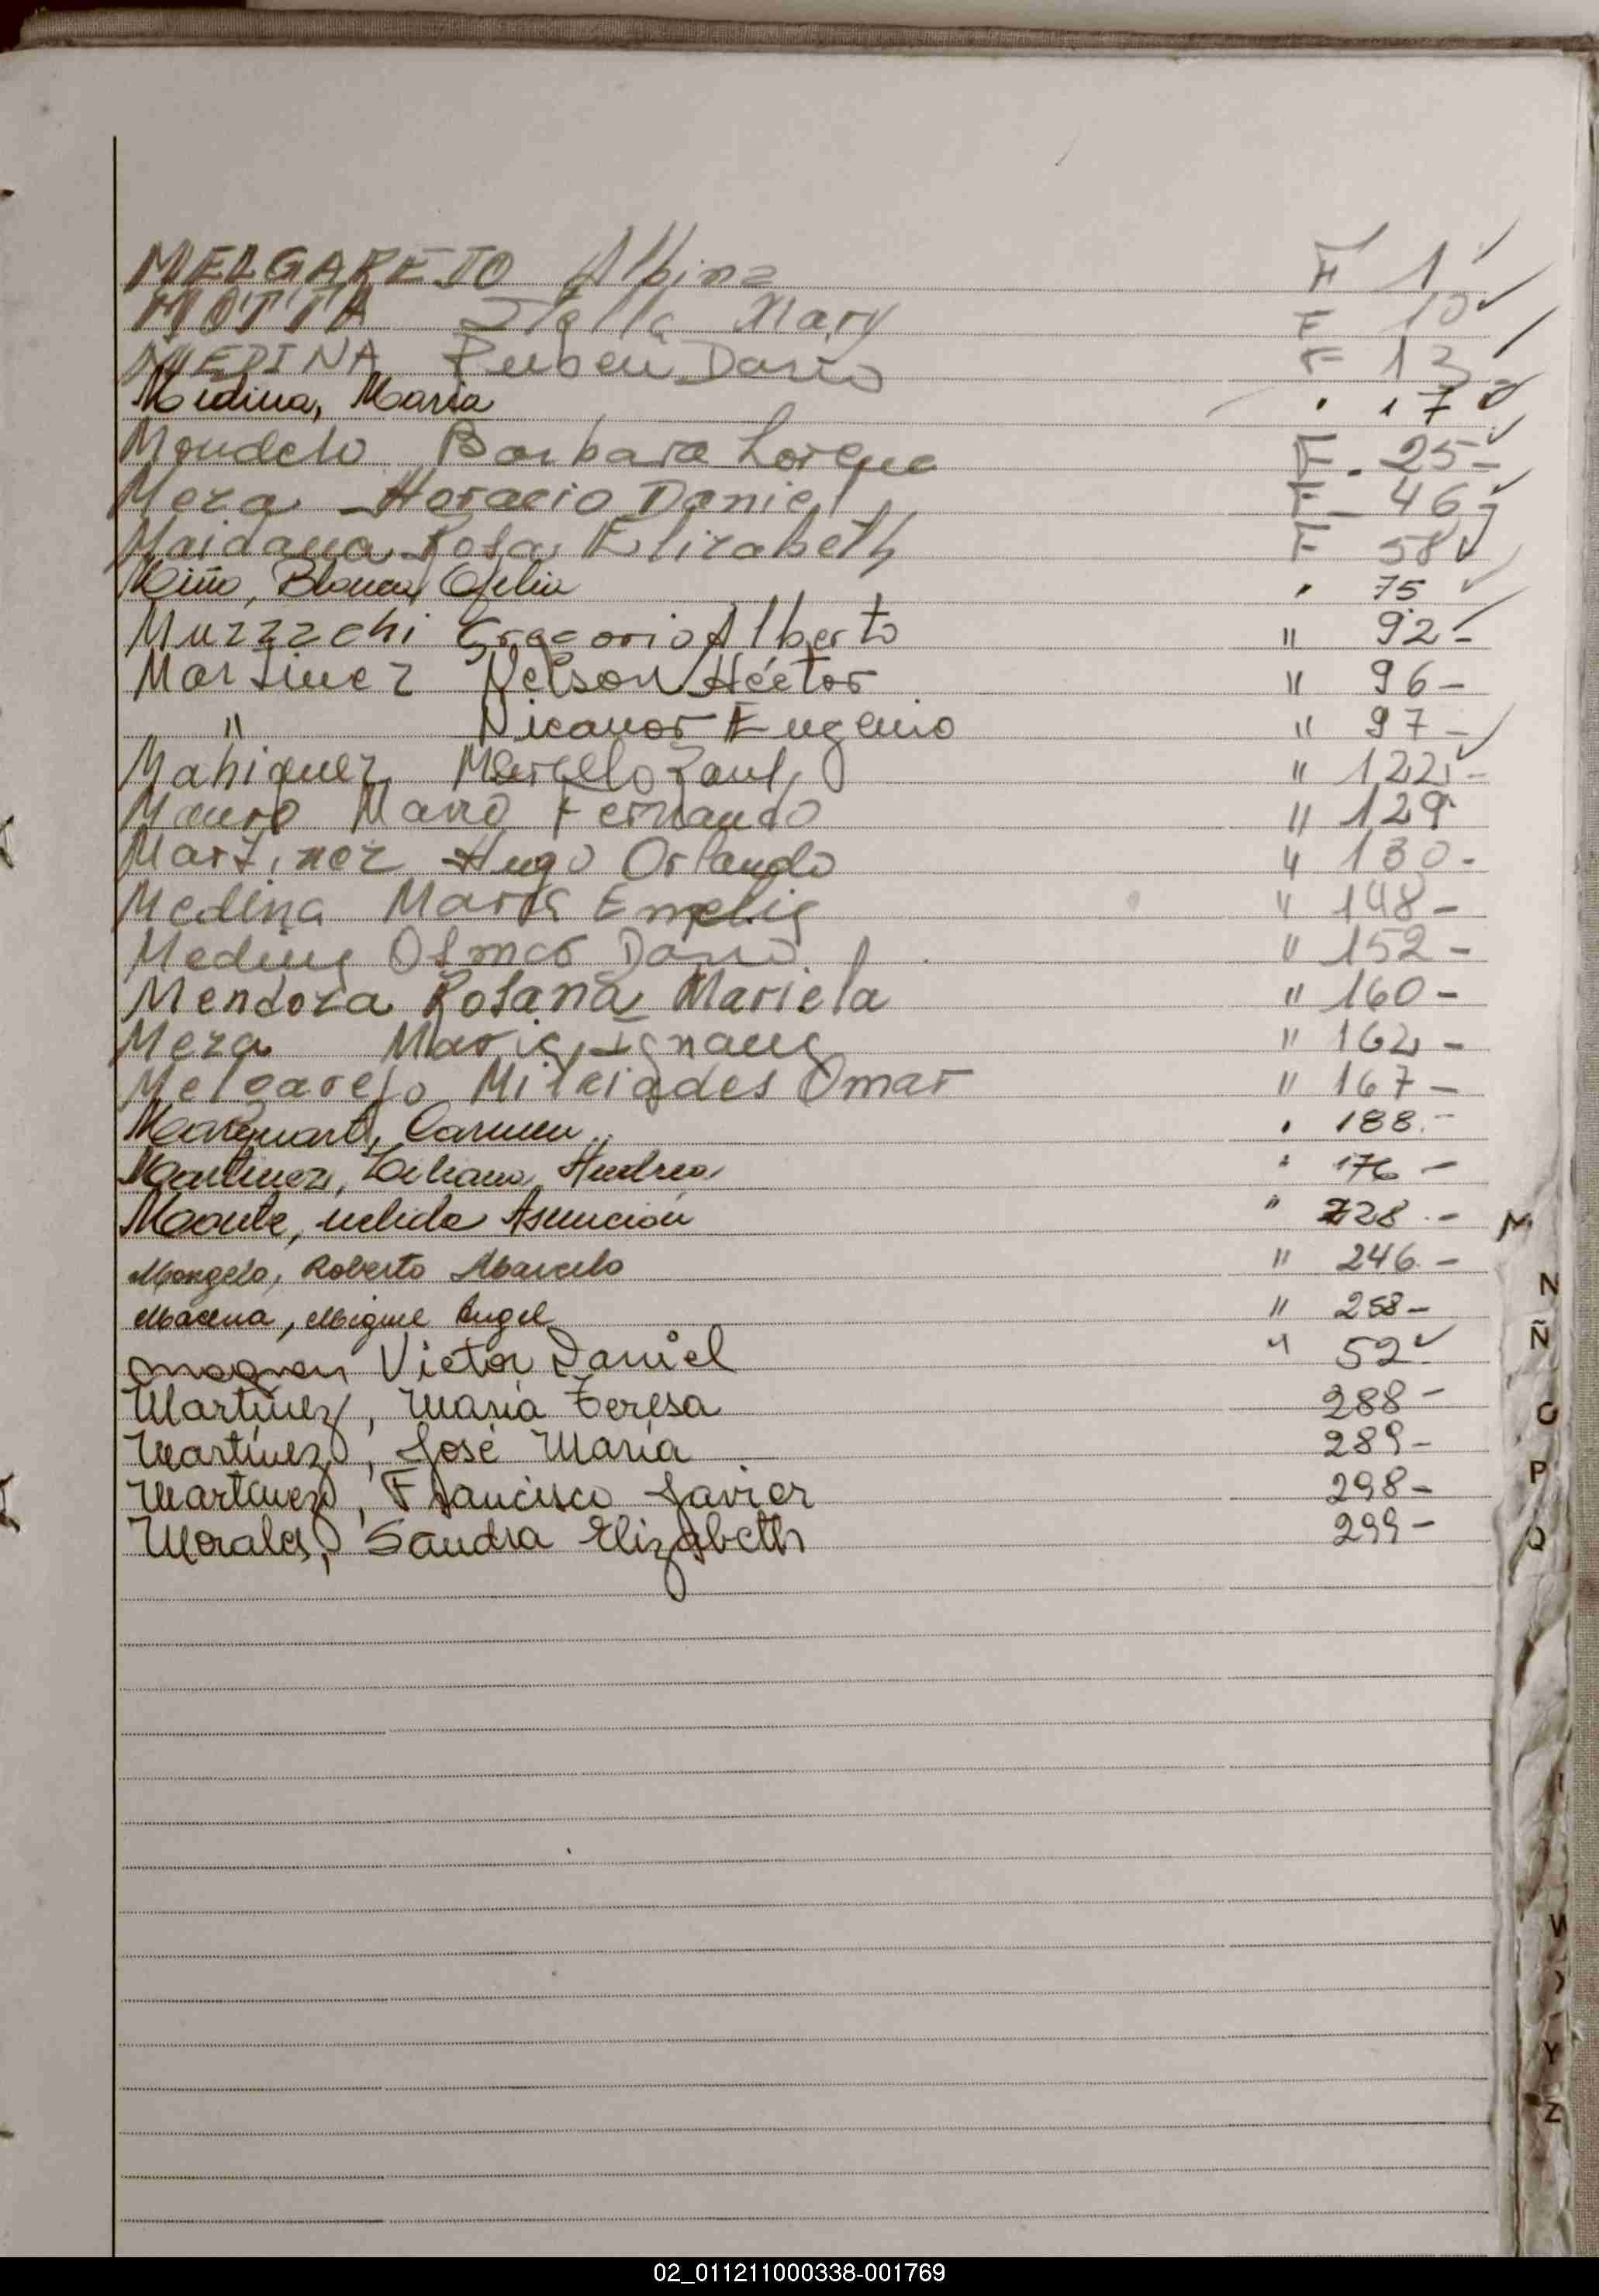 MELGAREJO Albina F 1
MOTTA Stella Mary F 10
MEDINA Ruben Dario F 13
Medina, Maria " 17
Mondelo Barbara Lorena F. 25-
Meza Horacio Daniel F- 46-
Maidana Rosa Elizabeth F 58
Miño, Blanca Ofelia " 75
Muzzachi Gregorio Alberto " 92-
Martinez Nelson Héctor " 96-
" Nicanor Eugenio " 97-
Mahiquez Marcelo Raul " 122-
Mauro Mario Fernando " 129
Martinez Hugo Orlando " 130-
Medina Maria Emelia " 148-
Medina Osmar Dario " 152-
Mendoza Rosana Mariela " 160-
Meza Maria Ignacia " 162-
Melgarejo Milciades Omar " 167-
Marquart, Carmen " 188.-
Martinez, Liliana Andrea " 176-
nelida Asunción " 228.-
Mongelo, Roberto Marcelo " 246.-
Macena, Miguel Angel " 258-
Victor Daniel " 52
Martínez, María Teresa 288-
Martínez, José María 289-
Martínez, Francisco Javier 298-
Morales, Sandra Elizabeth 299-
M
N
Ñ
O
P
Q
W
Y
Z
02_011211000338-001769